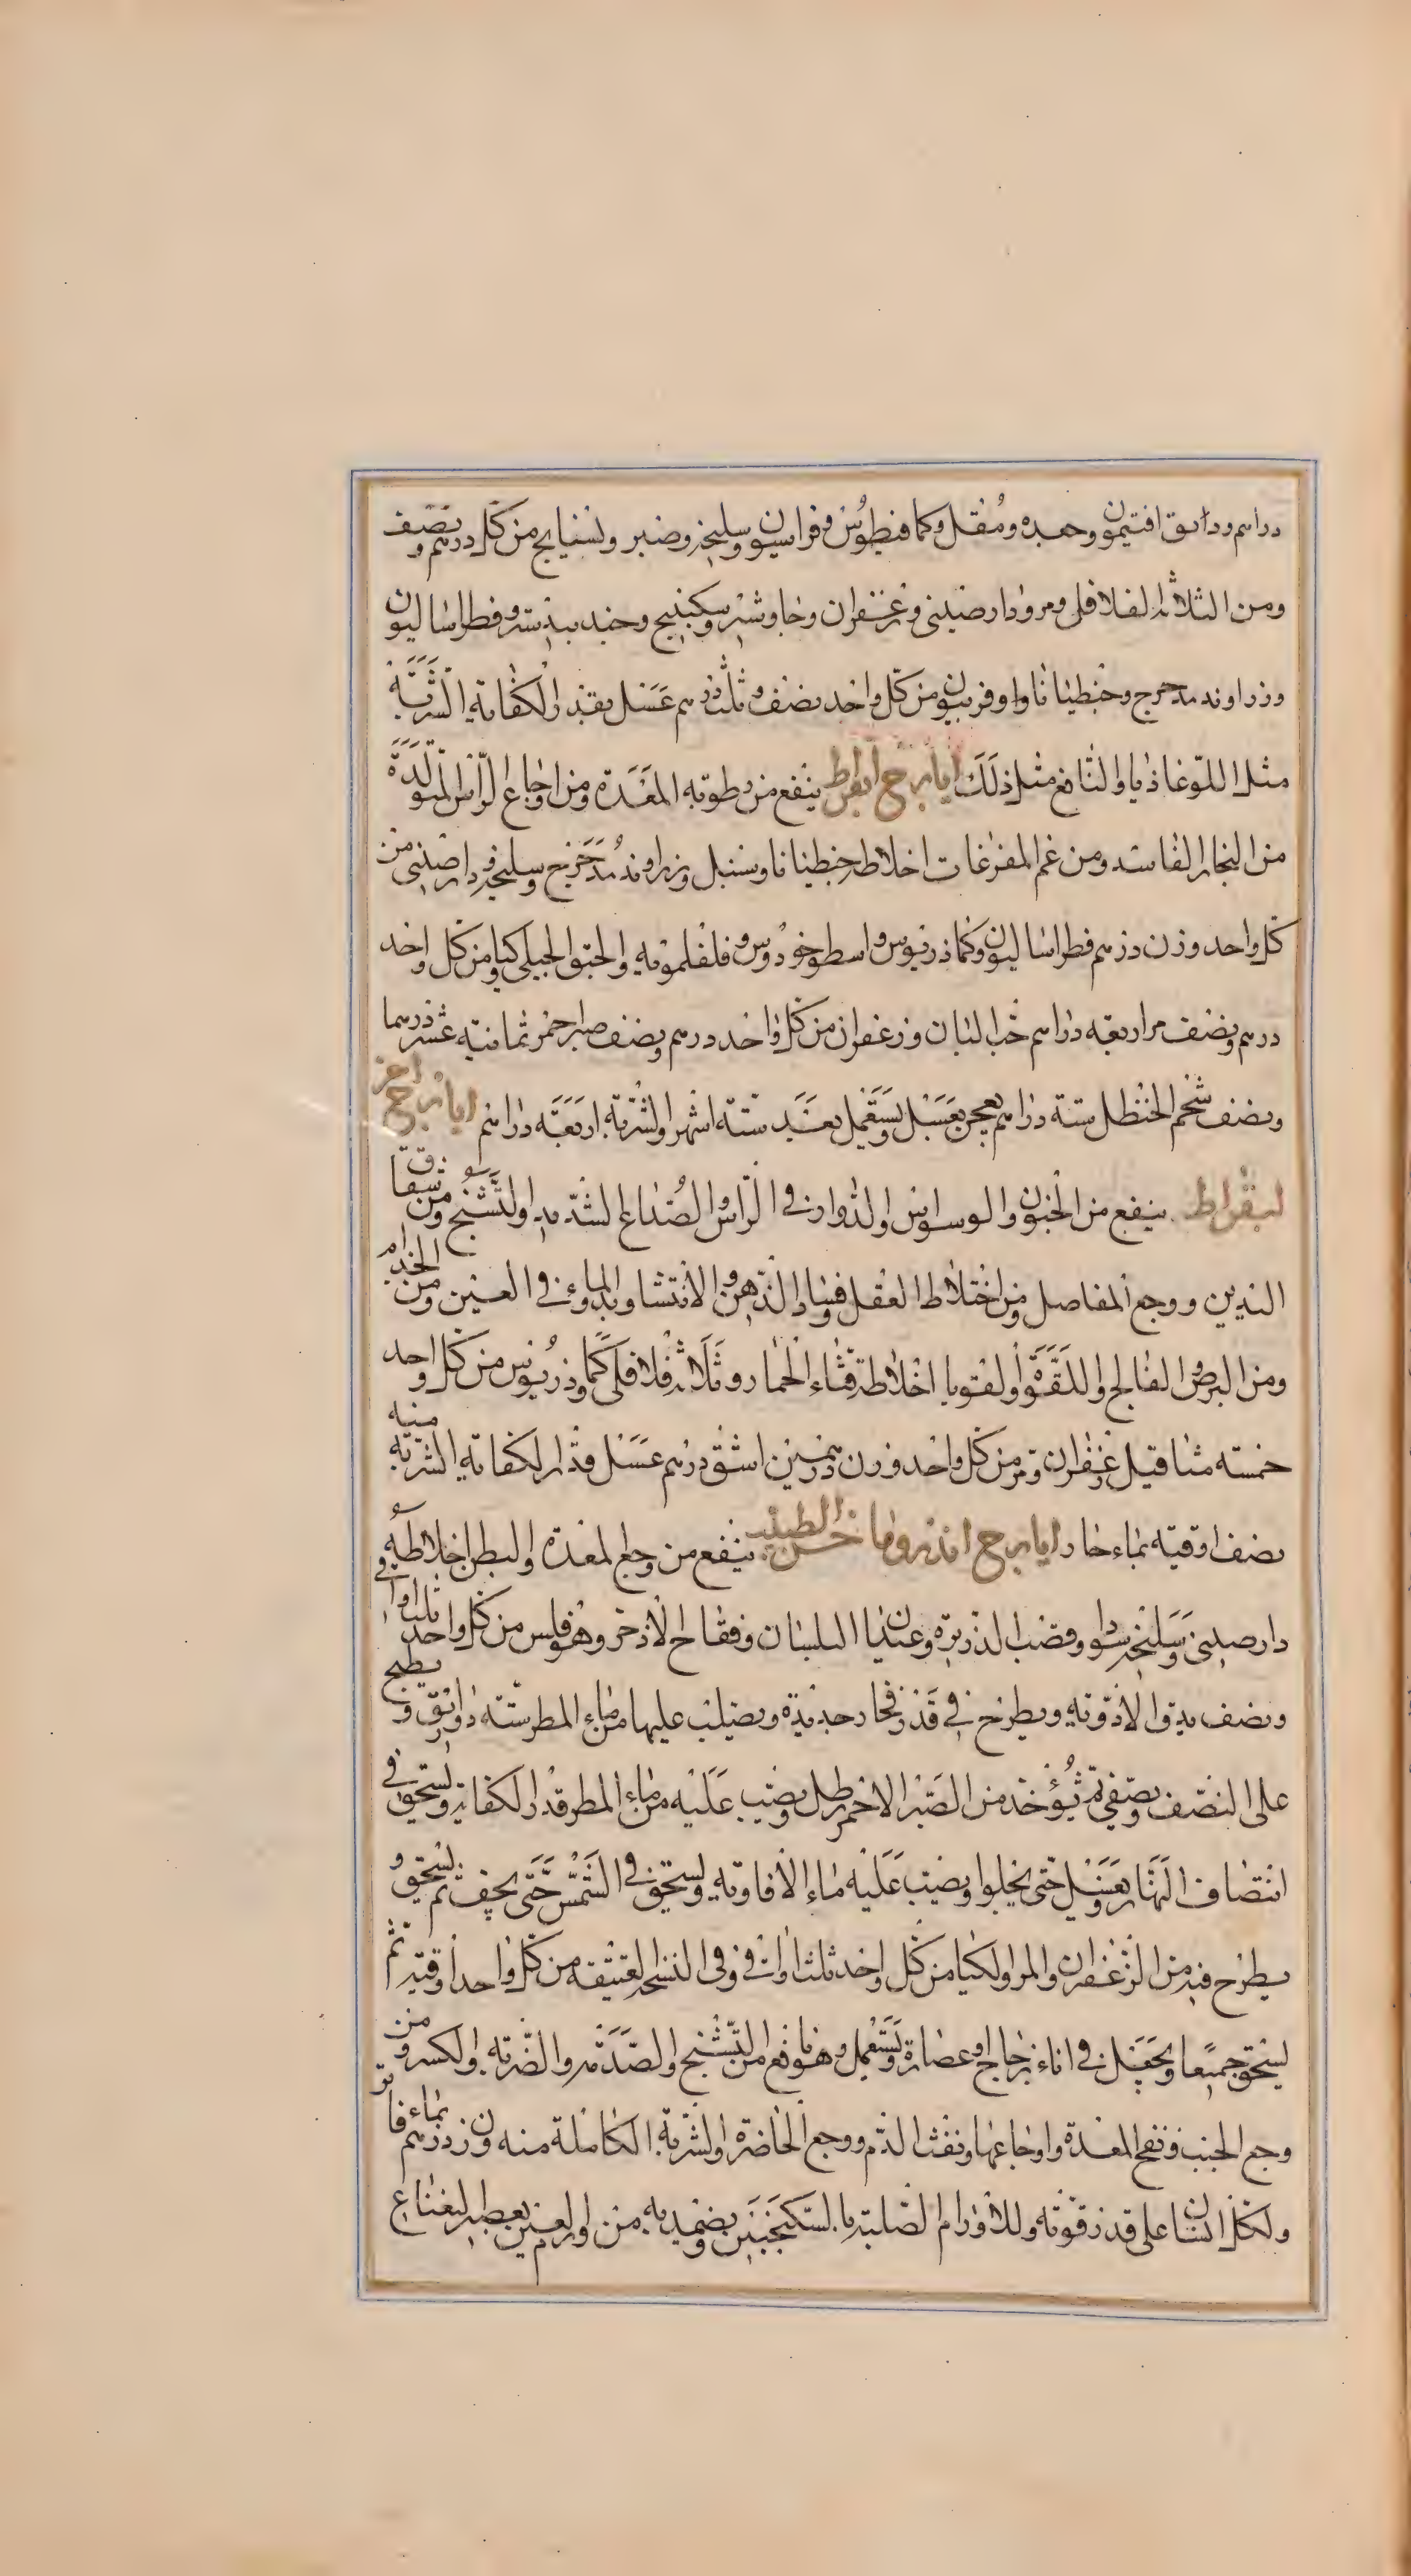 دراهم ودانق افتيمون وجعده ومقل وكمافيطوس وفراسيون وسليخه وصبر وبسفايج من كل درهم ونصف
ومن الثلاثة الفلافل ومر ودارصيني وزعفران وجاوشير وسكبينج وجندبيدستر وفطراساليون
وزراوند مدحرج وجنطيانا ناوا وفربيون من كل واحد نصف وثلث درهم عسل بقدر الكفاية الشربة
مثل اللوغاذيا والنافع مثل ذلك ايارج ابقراط ينفع من رطوبه المعدة ومن اوجاع الراس المتولدة
من البخار الفاسد ومن غم المفرغات اخلاطه جنطيانا ناوسنبل وزراوند مدحرج وسليخه ودارصيني من
كل واحد وزن درهم فطراساليون وكماذريوس واسطوخودوس وفلفلمويه والحبق الجبلي كيا ومن كل واحد
درهم ونصف مر اربعه دراهم حب البان وزعفران من كل واحد درهم ونصف صبر احمر ثمانية عشر درهما
ونصف شحم الحنظل ستة دراهم يعجن بعسل ويستعمل بعد ستة اشهر والشربة اربعة دراهم ايارج اخر
لبقراط ينفع من الجنون والوسواس والدوار في الراس والصداع الشديد والتشنج ومن شقاق
اليدين ووجع المفاصل ومن اختلاط العقل وفساد الذهن والانتشار وبدو الماء في العين ومن الجذام
ومن البرص والفالج واللقوة والقوبا اخلاطه قثاء الحمار وثلاثه فلافل كماذريوس من كل واحد
خمسة مثاقيل زعفران ومر من كل واحد وزن درهمين اشق درهم عسل قدر الكفاية الشربة منه
نصف اوقية بماء حار ايارج اندروماخس الطبيب ينفع من وجع المعدة والبطن اخلاطه
دارصيني وسليخه سوداء وقصب الذريرة وعيدان البلسان وفقاح الاذخر وهوفلس من كل واحد ثلث اواقي
ونصف يدق الادوية ويطرح في قدر فخار جديدة ويصب عليها من ماء المطر ستة دوارق ويطبخ
على النصف ويصفى ثم يؤخذ من الصبر الاحمر رطل ويصب عليه من ماء المطر قدر الكفاية ويسحق في
انتصاف النهار ويغسل حتى يحلوا ويصب عليه ماء الافاويه ويسحق في الشمس حتى يجف ثم يسحق و
يطرح فيه من الزعفران والمر والكيا من كل واحد ثلث اواقي وفي النسخ العتيقه من كل واحد اوقيه ثم
يسحق جميعا ويجعل في اناء زجاج او غضارة ويستعمل وهو نافع من التشنج والصدمه والضربه والكسر ومن
وجع الجنب ونفخ المعدة واوجاعها ونفث الدم ووجع الخاصرة والشربة الكاملة منه وزن درهم بماء فاتر
ولكل انسان على قدر قوته وللاورام الصلبه بالسكنجبين ويضمد به من اورام العين بعصير النعناع